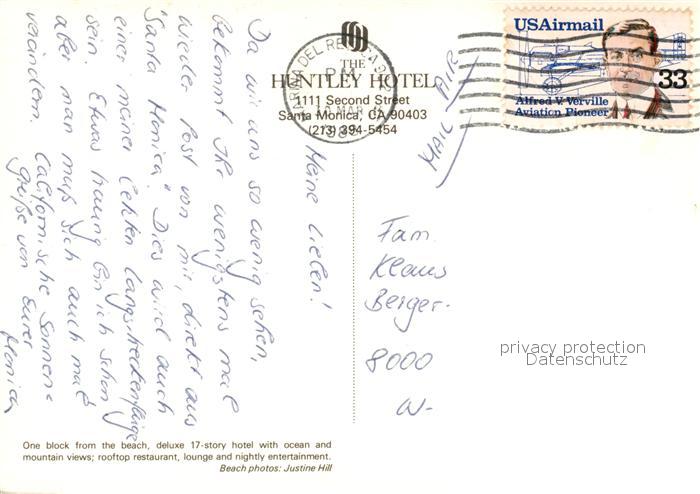 USAirmail
33
Alfred V. Verville
Aviation Pioneer
THE
HUNTLEY HOTEL
1111 Second Street
Santa Monica, CA 90403
(213) 394-5454
MARINA DEL REY
PM
MAR
AIR
MAIL
Meine Lieben!
Da wir uns so wenig sehen,
bekommt Ihr wenigstens mal
wieder Post von mir, direkt aus
"Santa Monica". Dies wird auch
einer meiner letzten Langstreckenflüge
sein. Etwas traurig bin ich schon
aber man muß sich auch mal
verändern.
Californische Sonnen-
grüße von Eurer
Monica
Fam.
Klaus
Berger.
8000
W-
privacy protection
Datenschutz
One block from the beach, deluxe 17-story hotel with ocean and
mountain views; rooftop restaurant, lounge and nightly entertainment.
Beach photos: Justine Hill